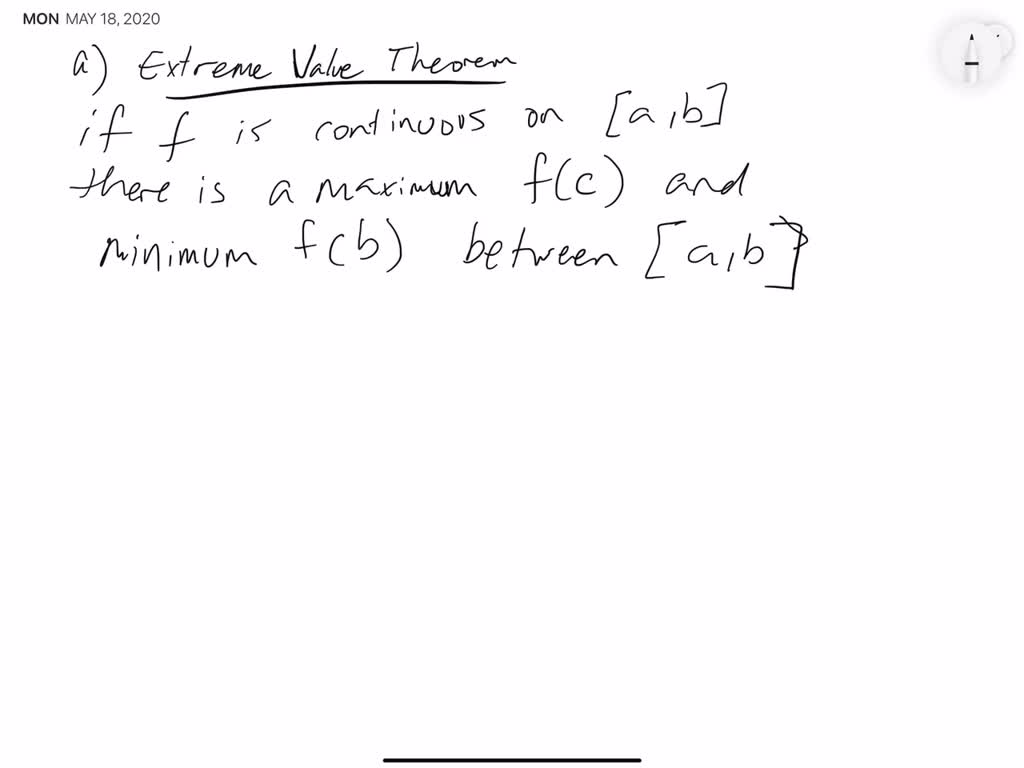 MON MAY 18, 2020
a) Extreme Value Theorem
if f is continuous on [a,b]
there is a maximum f(c) and
minimum f(b) between [a,b]